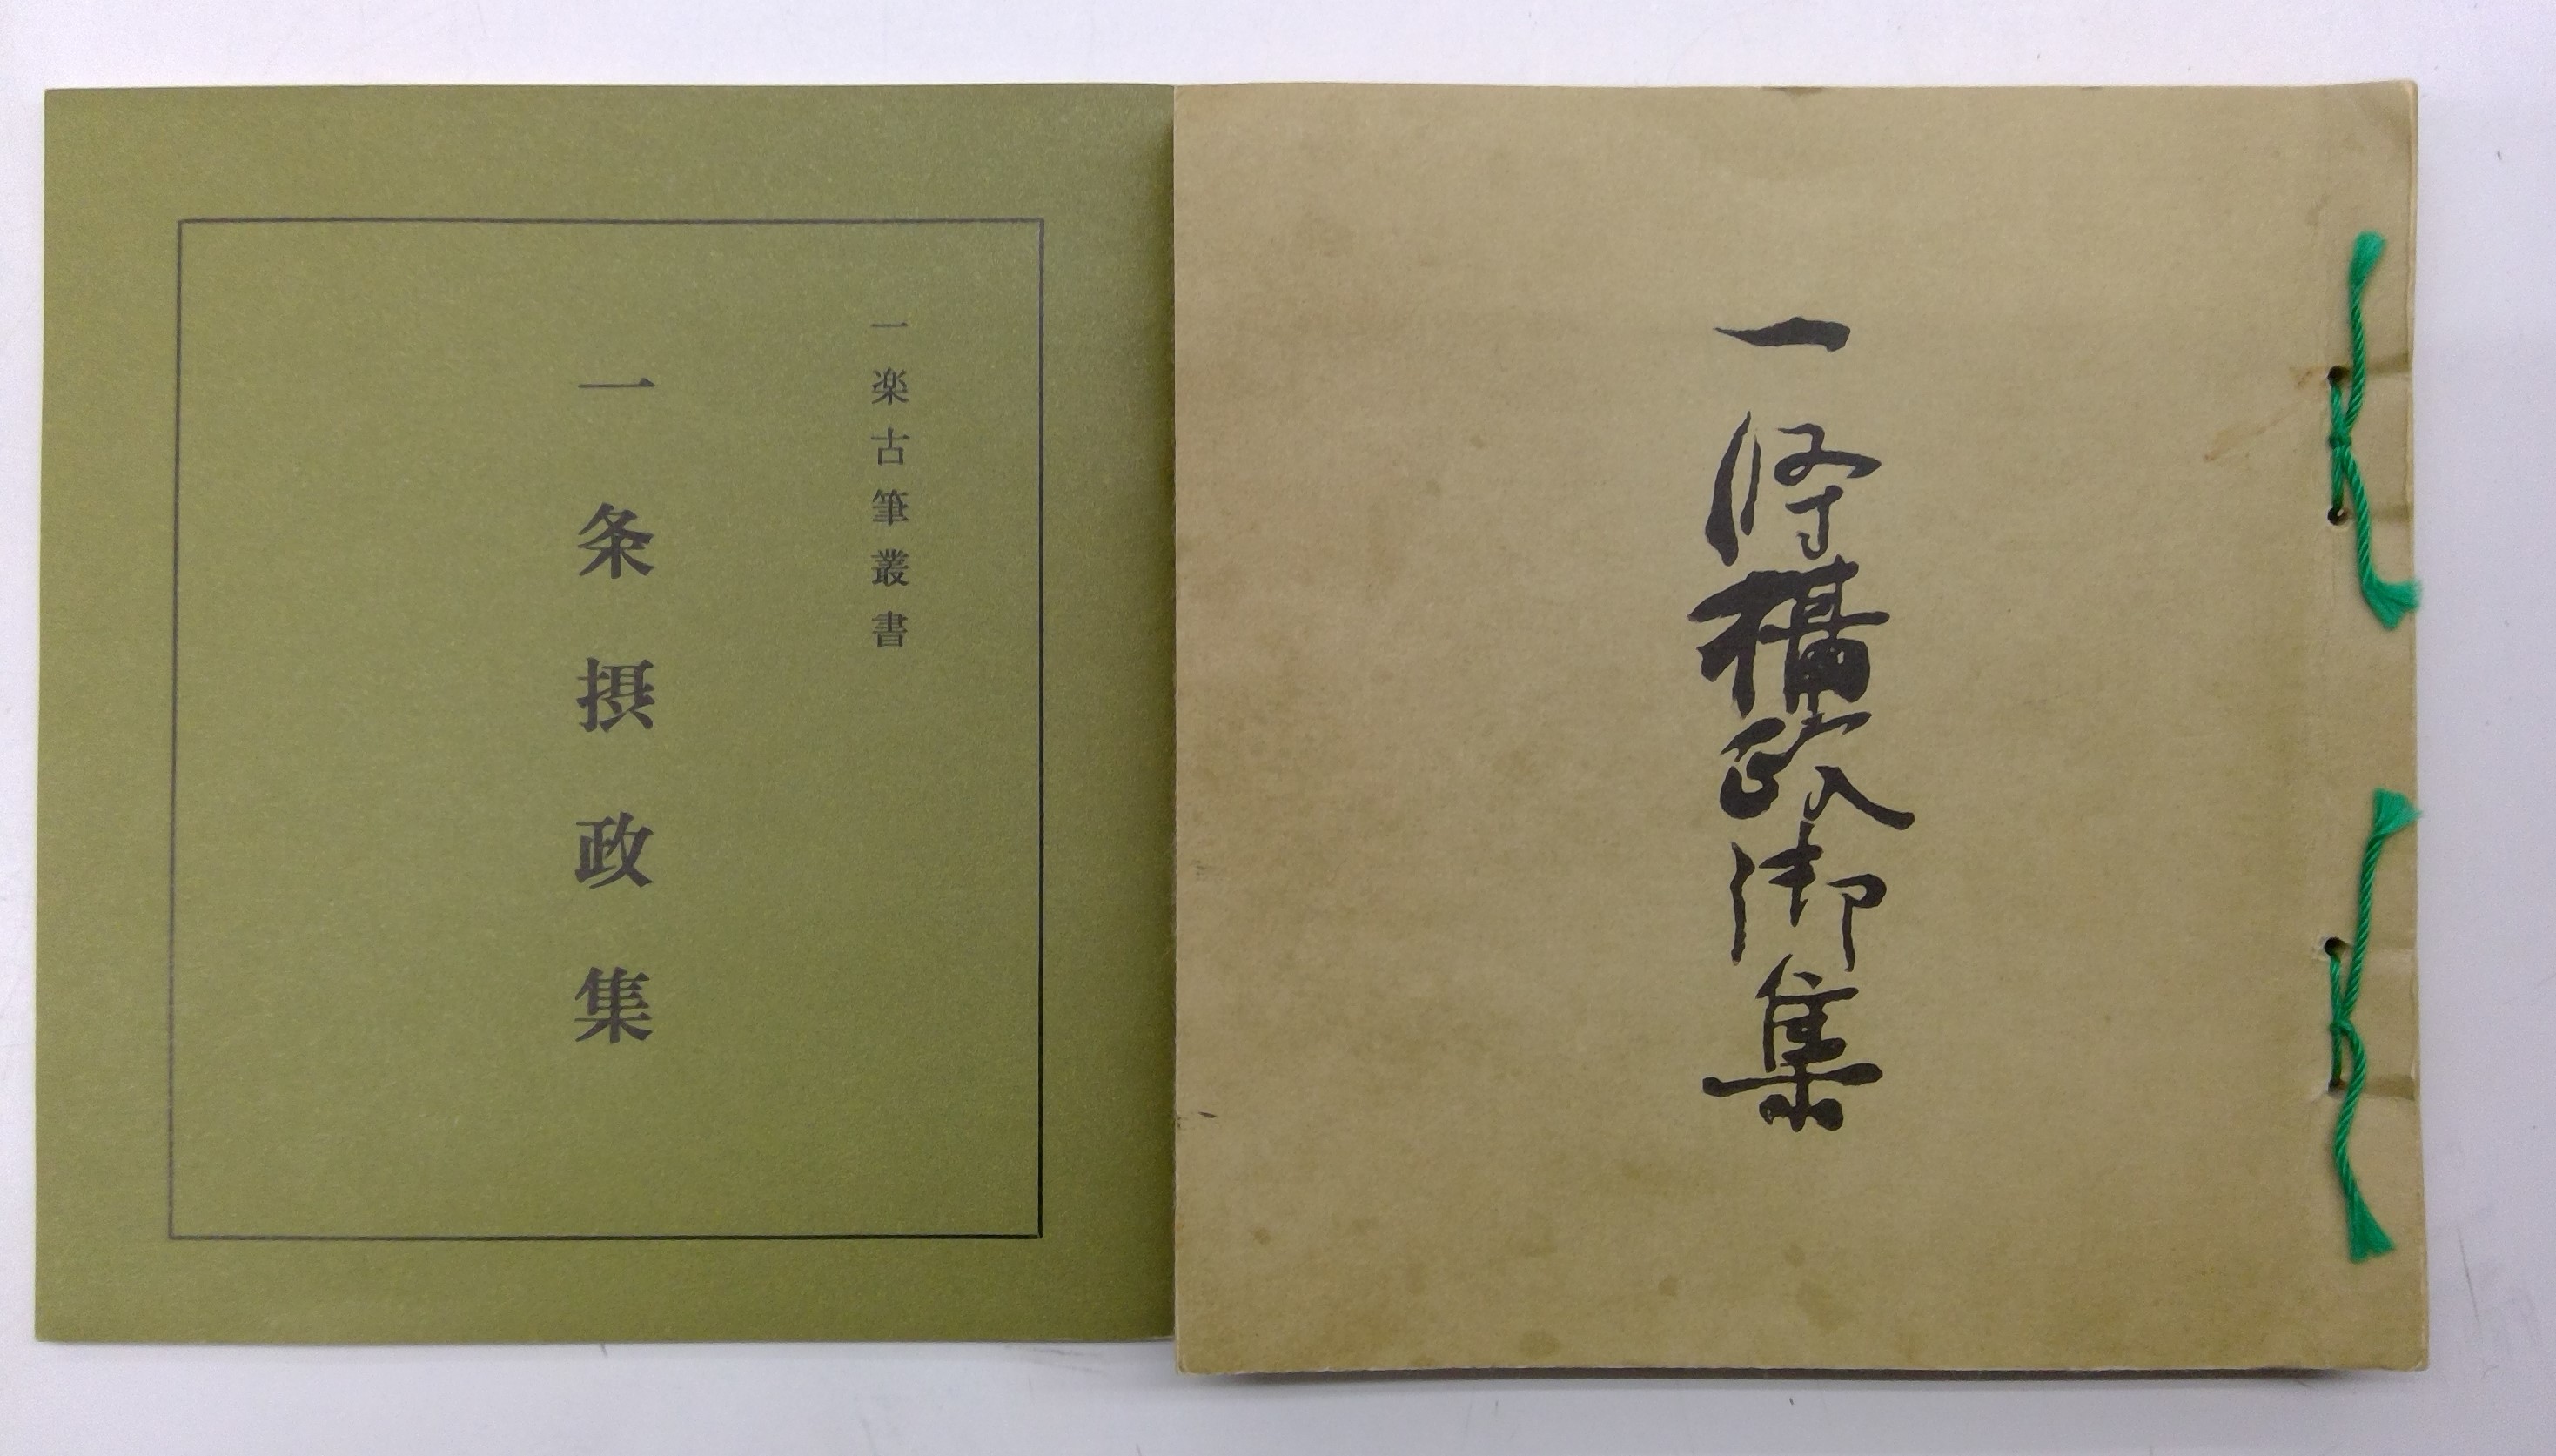 一條攝政御集
一楽古筆叢書
一条摂政集